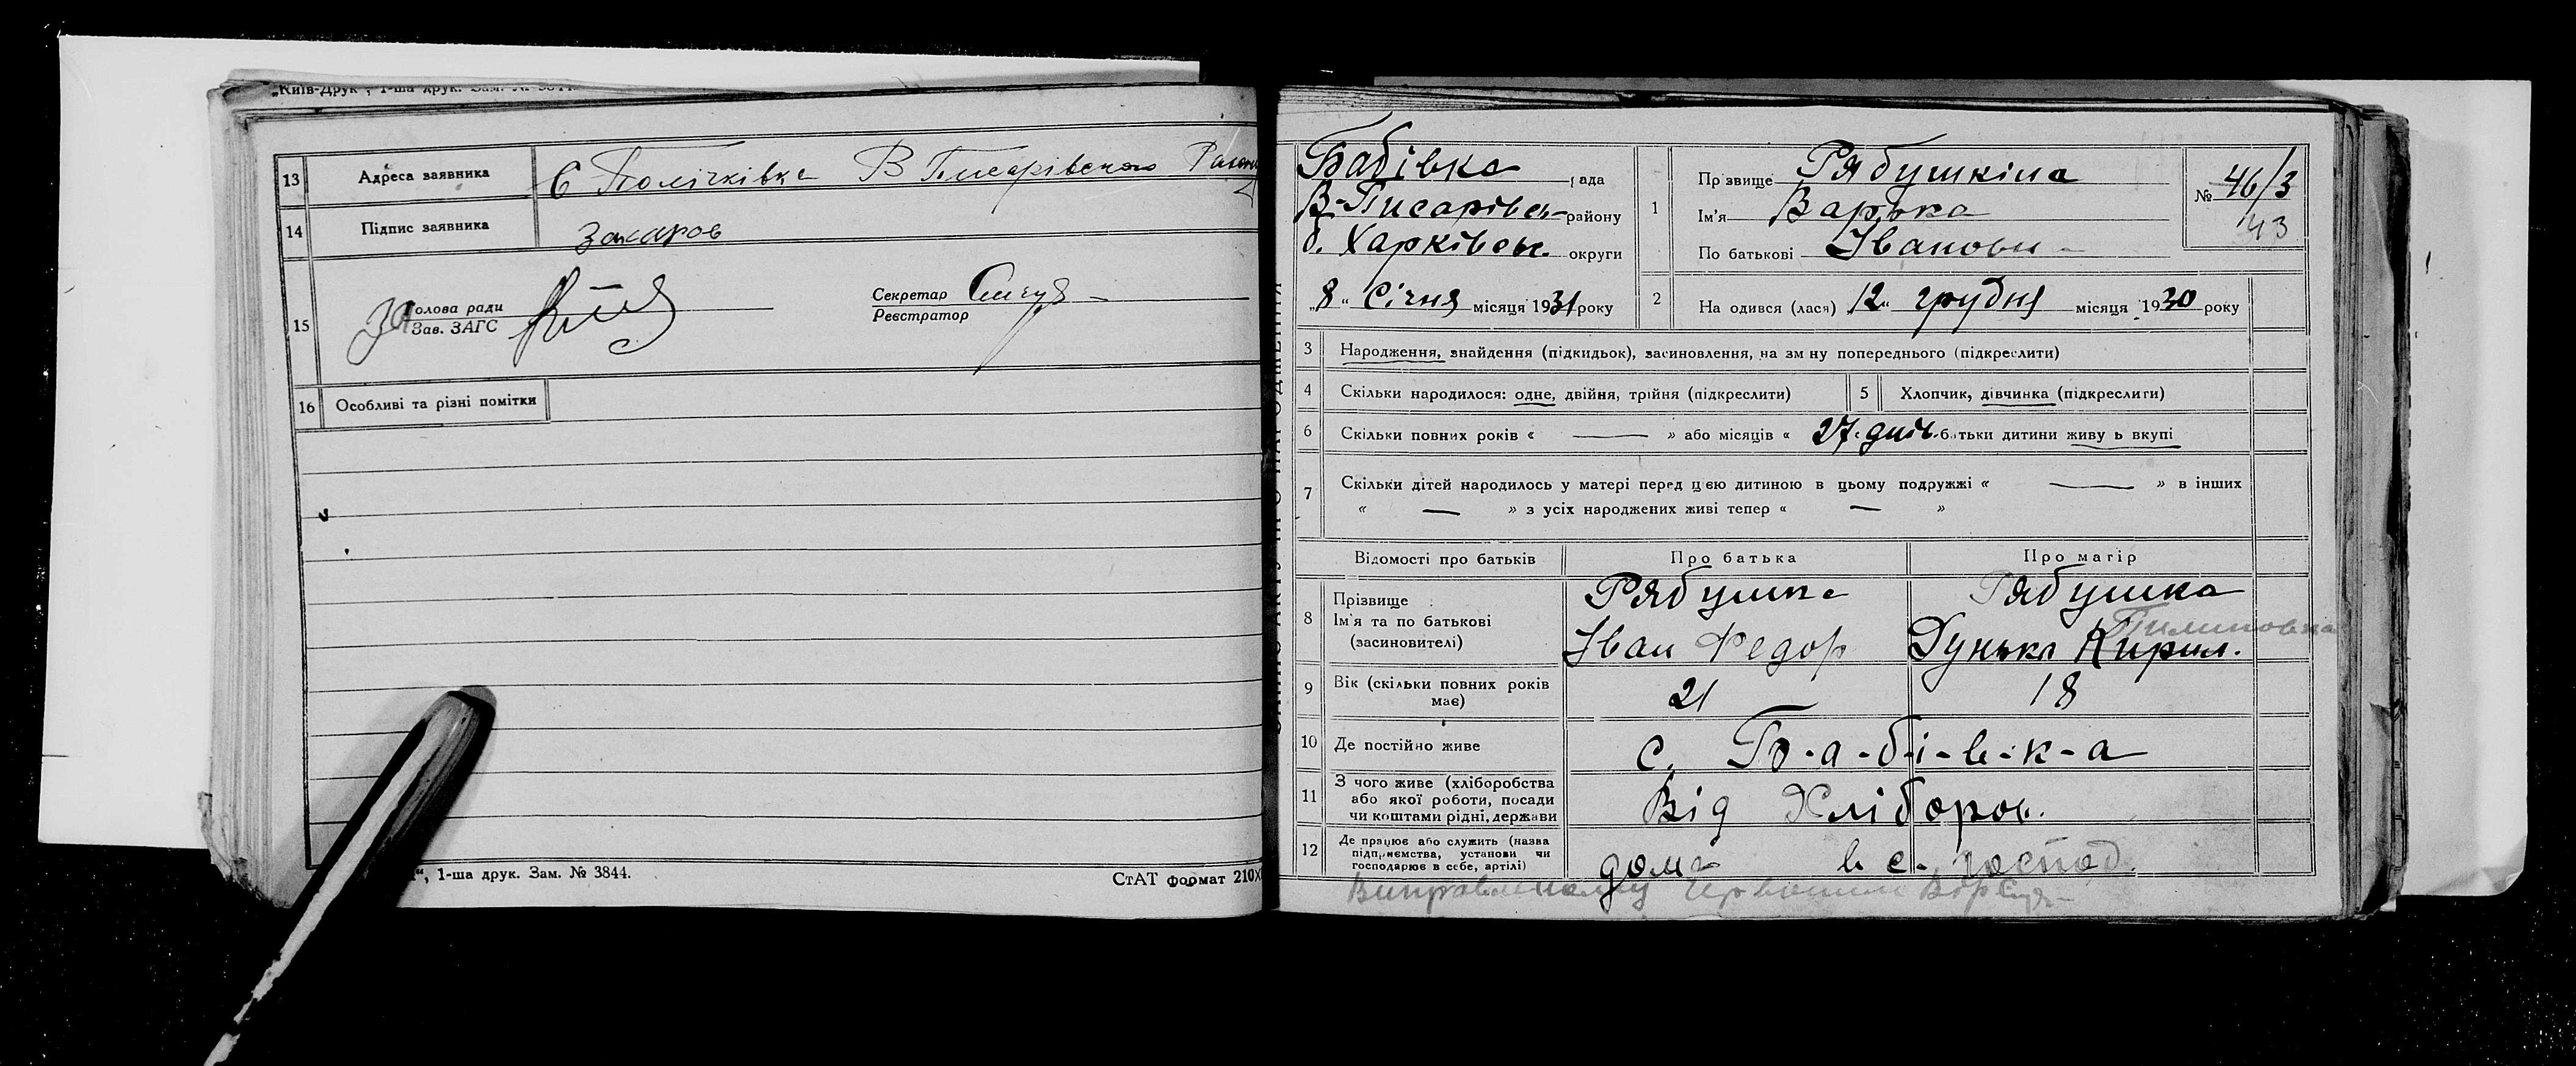 „Київ-Друк", 1-ша друк. Зам. №
13 Адреса заявника С В Писарівского
14 Підпис заявника Захаров
15 За Голова ради
Зав. ЗАГС
Секретар
Реєстратор
16 Особливі та різні помітки
1-ша друк. Зам. № 3844.
СтАТ формат 210X
Бабівка рада
В-Писарівсь- району
б. Харківсь. округи
„8" Січня місяця 1931 року
1 Прізвище Рябушкіна
Ім'я Варька
По батькові Іванови-
№ 46/3
43
2 На одився (лася) „12" грудня місяця 1930 року
3 Народження, знайдення (підкидьок), засиновлення, на зм ну попереднього (підкреслити)
4 Скільки народилося: одне, двійня, трійня (підкреслити)
5 Хлопчик, дівчинка (підкреслити)
6 Скільки повних років « — » або місяців « 27 днів батьки дитини живу ь вкупі
7 Скільки дітей народилось у матері перед цією дитиною в цьому подружжі « — » в інших
« — » з усіх народжених живі тепер « — »
Відомості про батьків Про батька Про матір
8 Прізвище
Ім'я та по батькові
(засиновителі)
Рябушка
Іван Федор
Рябушка
Пилиповна
Дунька Кирил.
9 Вік (скільки повних років має) 21 18
10 Де постійно живе с. Б-а-б-і-в-к-а
11 З чого живе (хліборобства
або якої роботи, посади
чи коштами рідні, держави
Від Хлібороб.
12 Де працює або служить (назва
підприємства, установи чи
господарює в себе, артілі)
дома в с. господ.